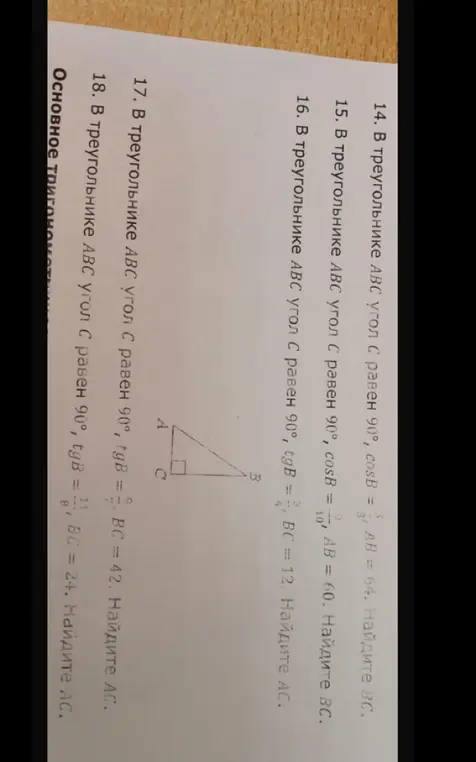 14. В треугольнике ABC угол C равен 90°, cosB = 5/8, AB = 64. Найдите BC.
15. В треугольнике ABC угол C равен 90°, cosB = /10, AB = 60. Найдите BC.
16. В треугольнике ABC угол C равен 90°, tgB = 3/4, BC = 12. Найдите AC.
B
A C
17. В треугольнике ABC угол C равен 90°, tgB = /7, BC = 42. Найдите AC.
18. В треугольнике ABC угол C равен 90°, tgB = 11/8, BC = 24. Найдите AC.
Основное